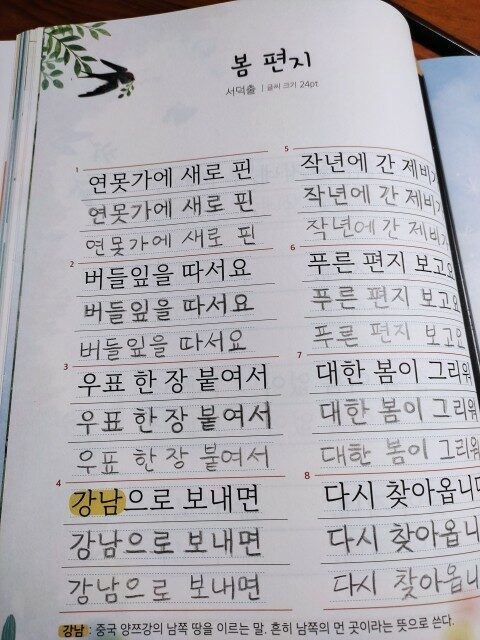 봄 편지
서덕출 | 글씨 크기 24pt
1
연못가에 새로 핀
연못가에 새로 핀
연못가에 새로 핀
2
버들잎을 따서요
버들잎을 따서요
버들잎을 따서요
3
우표 한 장 붙여서
우표 한 장 붙여서
우표 한 장 붙여서
4
강남으로 보내면
강남으로 보내면
강남으로 보내면
5
작년에 간 제비
작년에 간 제비
작년에 간 제비
6
푸른 편지 보고
푸른 편지 보고요
푸른 편지 보고요
7
대한 봄이 그리워
대한 봄이 그리워
대한 봄이 그리워
8
다시 찾아옵니다
다시 찾아옵니
다시 찾아옵니
강남 : 중국 양쯔강의 남쪽 땅을 이르는 말. 흔히 남쪽의 먼 곳이라는 뜻으로 쓴다.